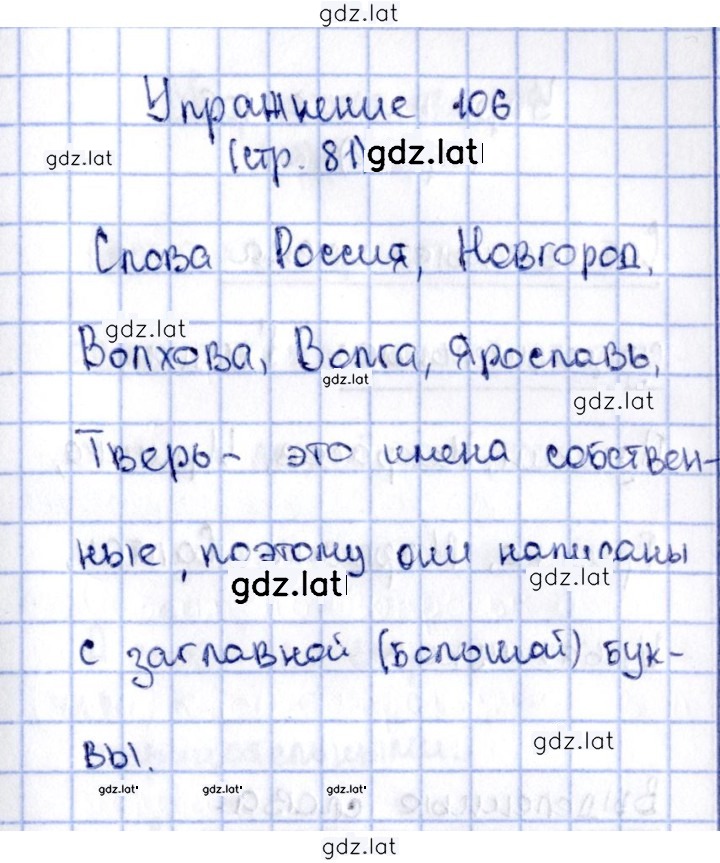 gdz.lat
Упражнение 106
gdz.lat
(стр. 81) gdz.lat
Слова Россия, Новгород,
gdz.lat
Волхова, Волга, Ярославь,
gdz.lat
gdz.lat
Тверь - это имена собствен-
ные, поэтому они написаны
gdz.lat
gdz.lat
с заглавной (большой) бук-
вы.
gdz.lat
gdz.lat gdz.lat gdz.lat
gdz.lat